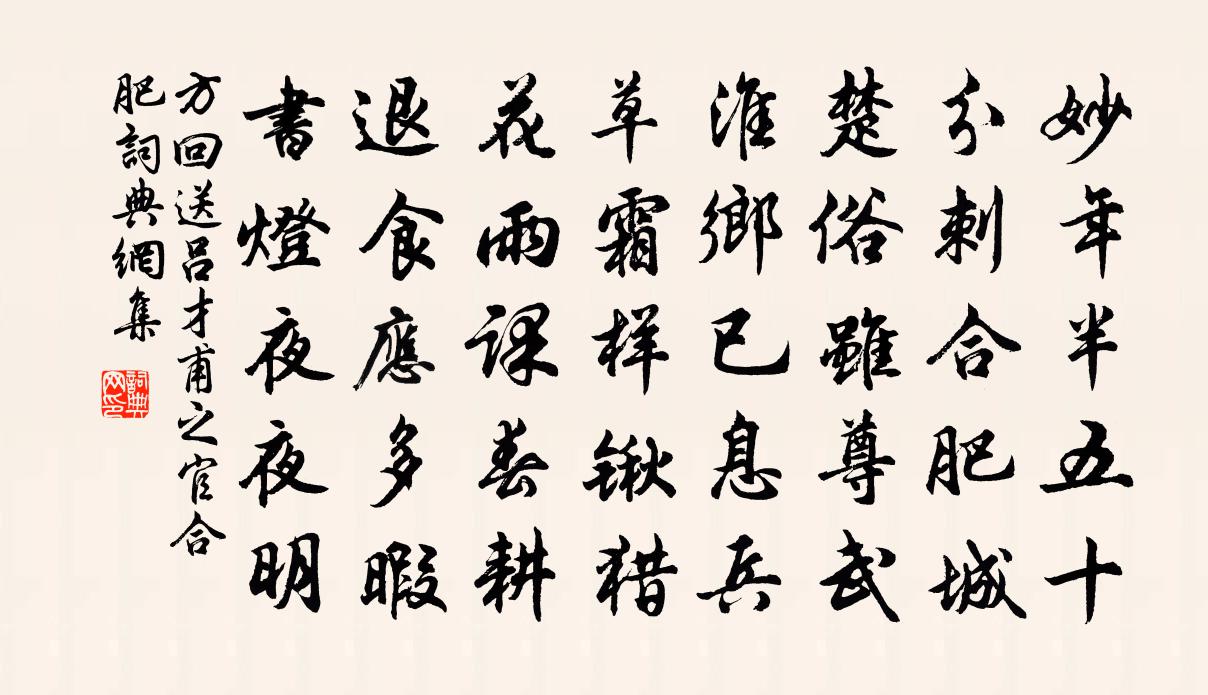 妙年半五十
分刺合肥城
楚俗雖尊武
淮鄉已息兵
草霜样锹猎
花雨課春耕
退食應多暇
書燈夜夜明
方回送呂才甫之官合
肥詞典網集
詞典
网印